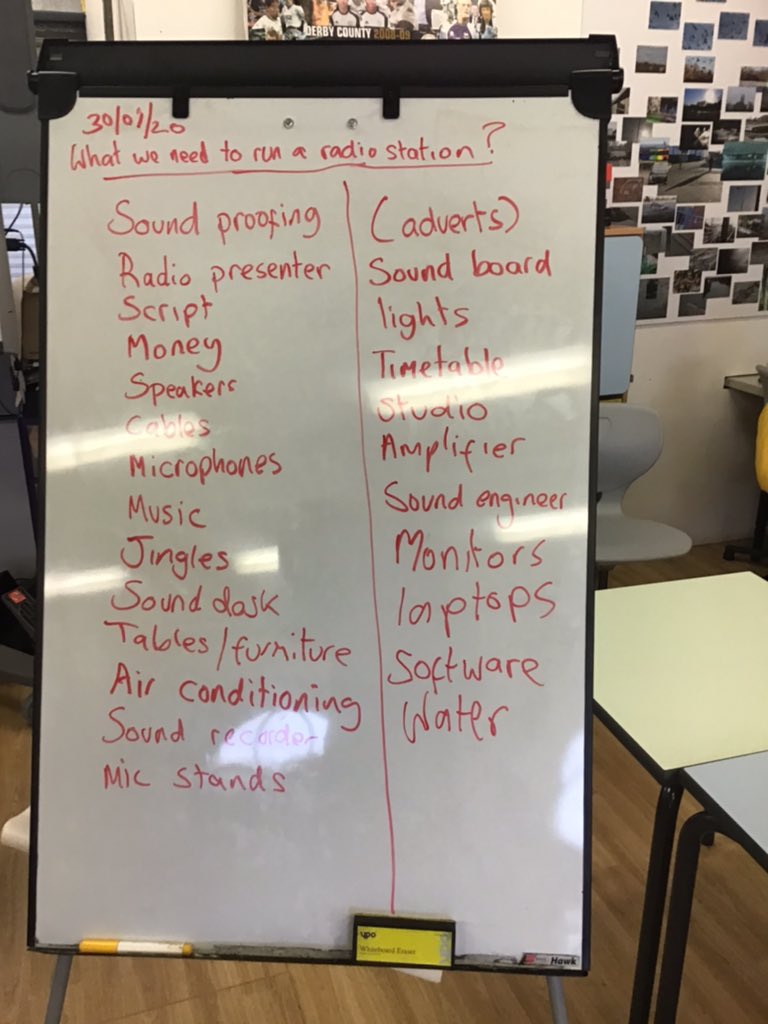 DERBY COUNTY 2008-09
30/01/20
What we need to run a radio station?
Sound proofing
Radio presenter
Script
Money
Speakers
Cables
Microphones
Music
Jingles
Sound dask
Tables/furniture
Air conditioning
Sound recorder
Mic stands
(adverts)
Sound board
lights
Timetable
Studio
Amplifier
Sound engineer
Monitors
laptops
Software
Water
ypo
Whiteboard Eraser
Hawk